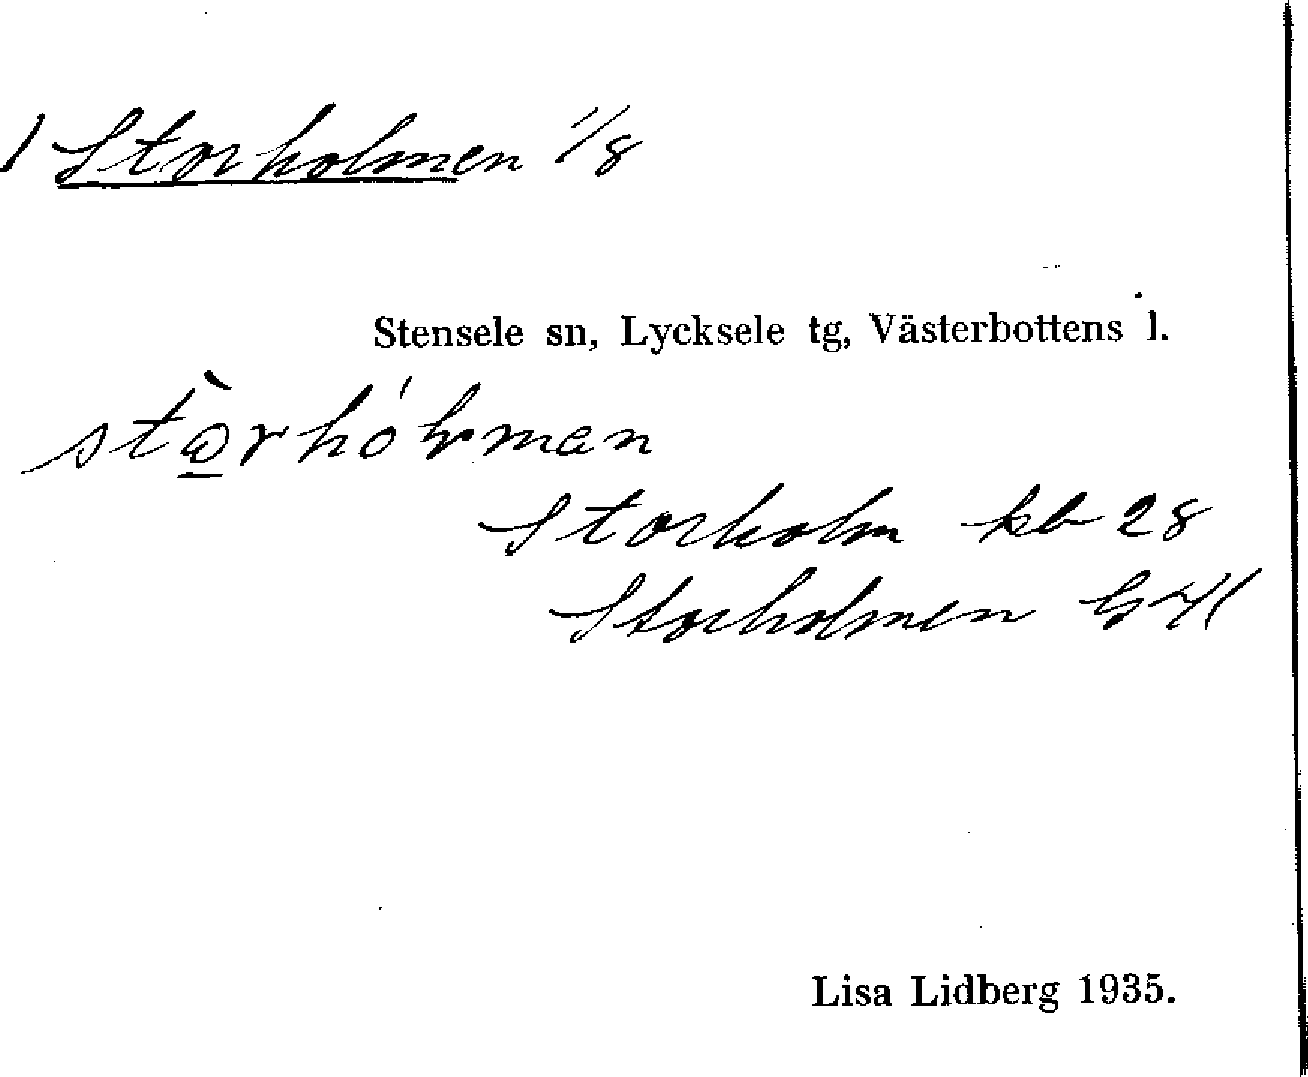 1 Storholmen 1/8
Stensele sn, Lycksele tg, Västerbottens l.
Storholm kb 28
Storholmen
Lisa Lidberg 1935.